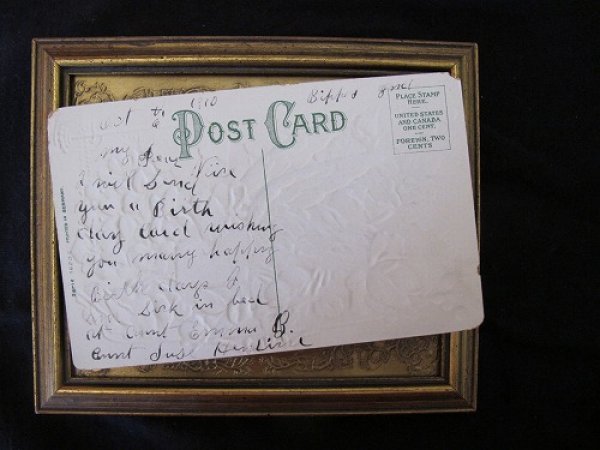 1910 Bippus
POST CARD
PLACE STAMP
HERE.
UNITED STATES
AND CANADA
ONE CENT.
FOREIGN, TWO
CENTS
my Dear
I will Send
you a Birth
day card wishing
you many happy
Birth days
Sick in bed
at Aunt Emma B.
Aunt
PRINTED IN GERMANY